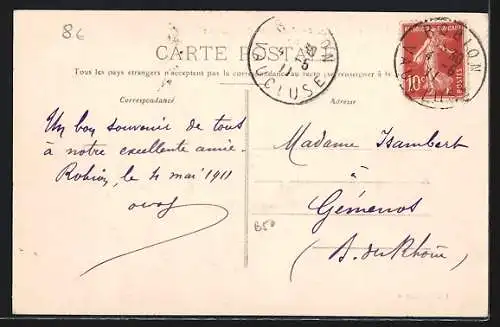 86
CARTE POSTALE
Tous les pays étrangers n'acceptent pas la correspondance au recto (se renseigner à la
Correspondance
Adresse
Un bon souvenir de tous
à notre excellente amie.
Robion, le 4 mai 1911
Madame Isambert
à
Gémenos
(B. du Rhône)
B50
ROBION
VAUCLUSE
10
POSTES